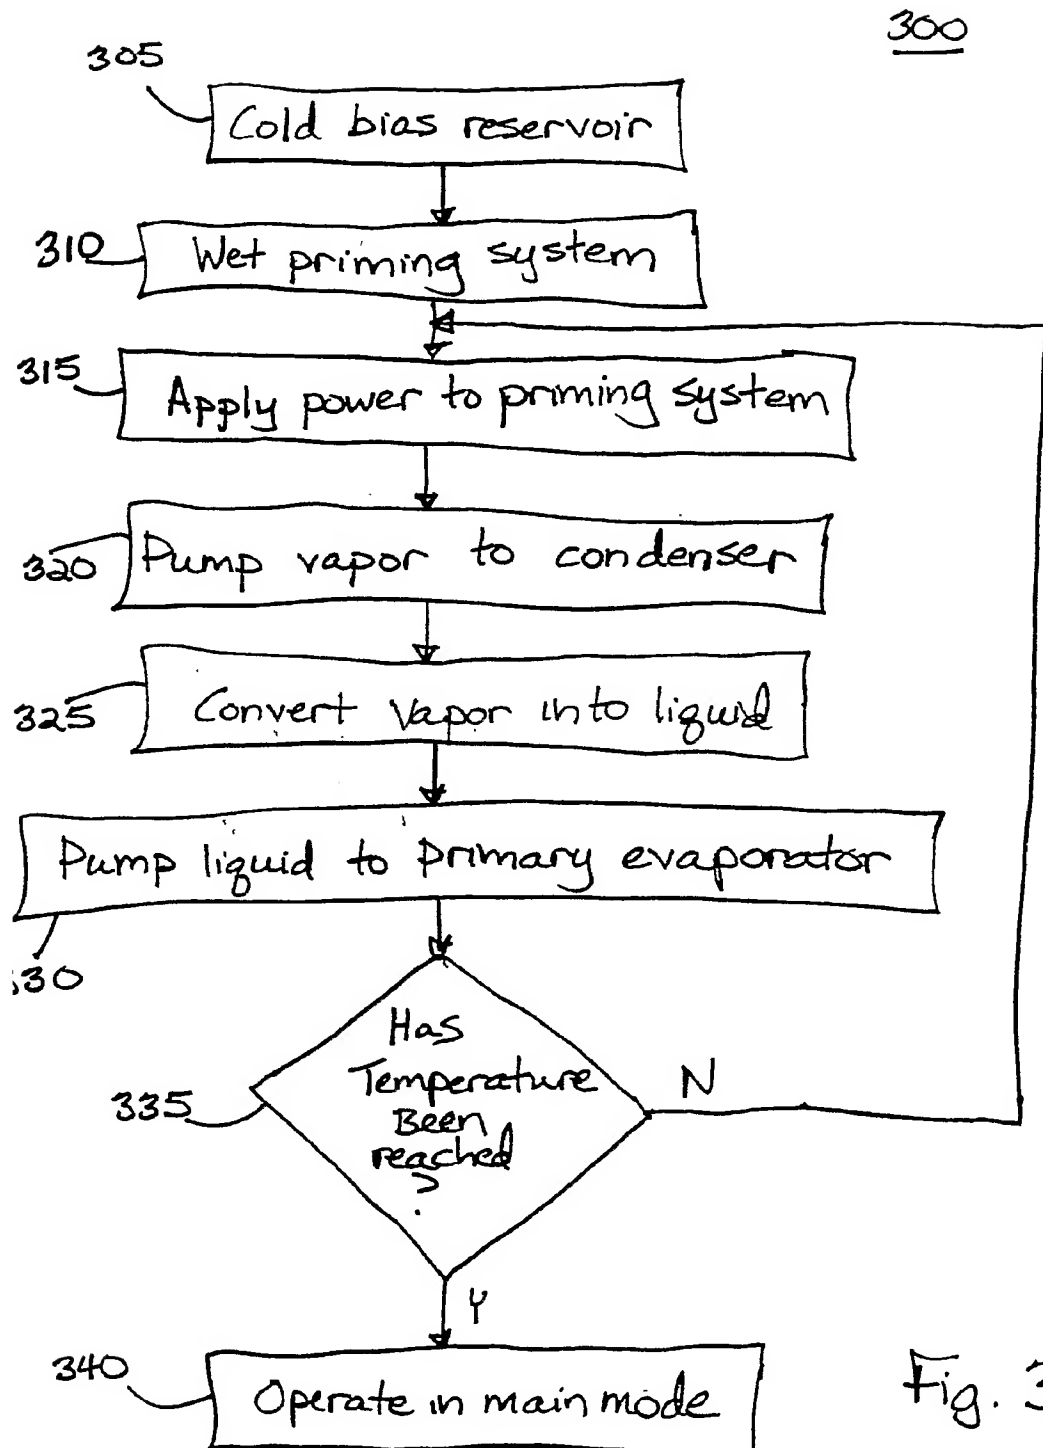 300
305
Cold bias reservoir
310
Wet priming system
315
Apply power to priming system
320
Pump vapor to condenser
325
Convert vapor into liquid
Pump liquid to primary evaporator
30
Has
Temperature
Been
reached
?
335
N
Y
340
Operate in main mode
Fig. 3